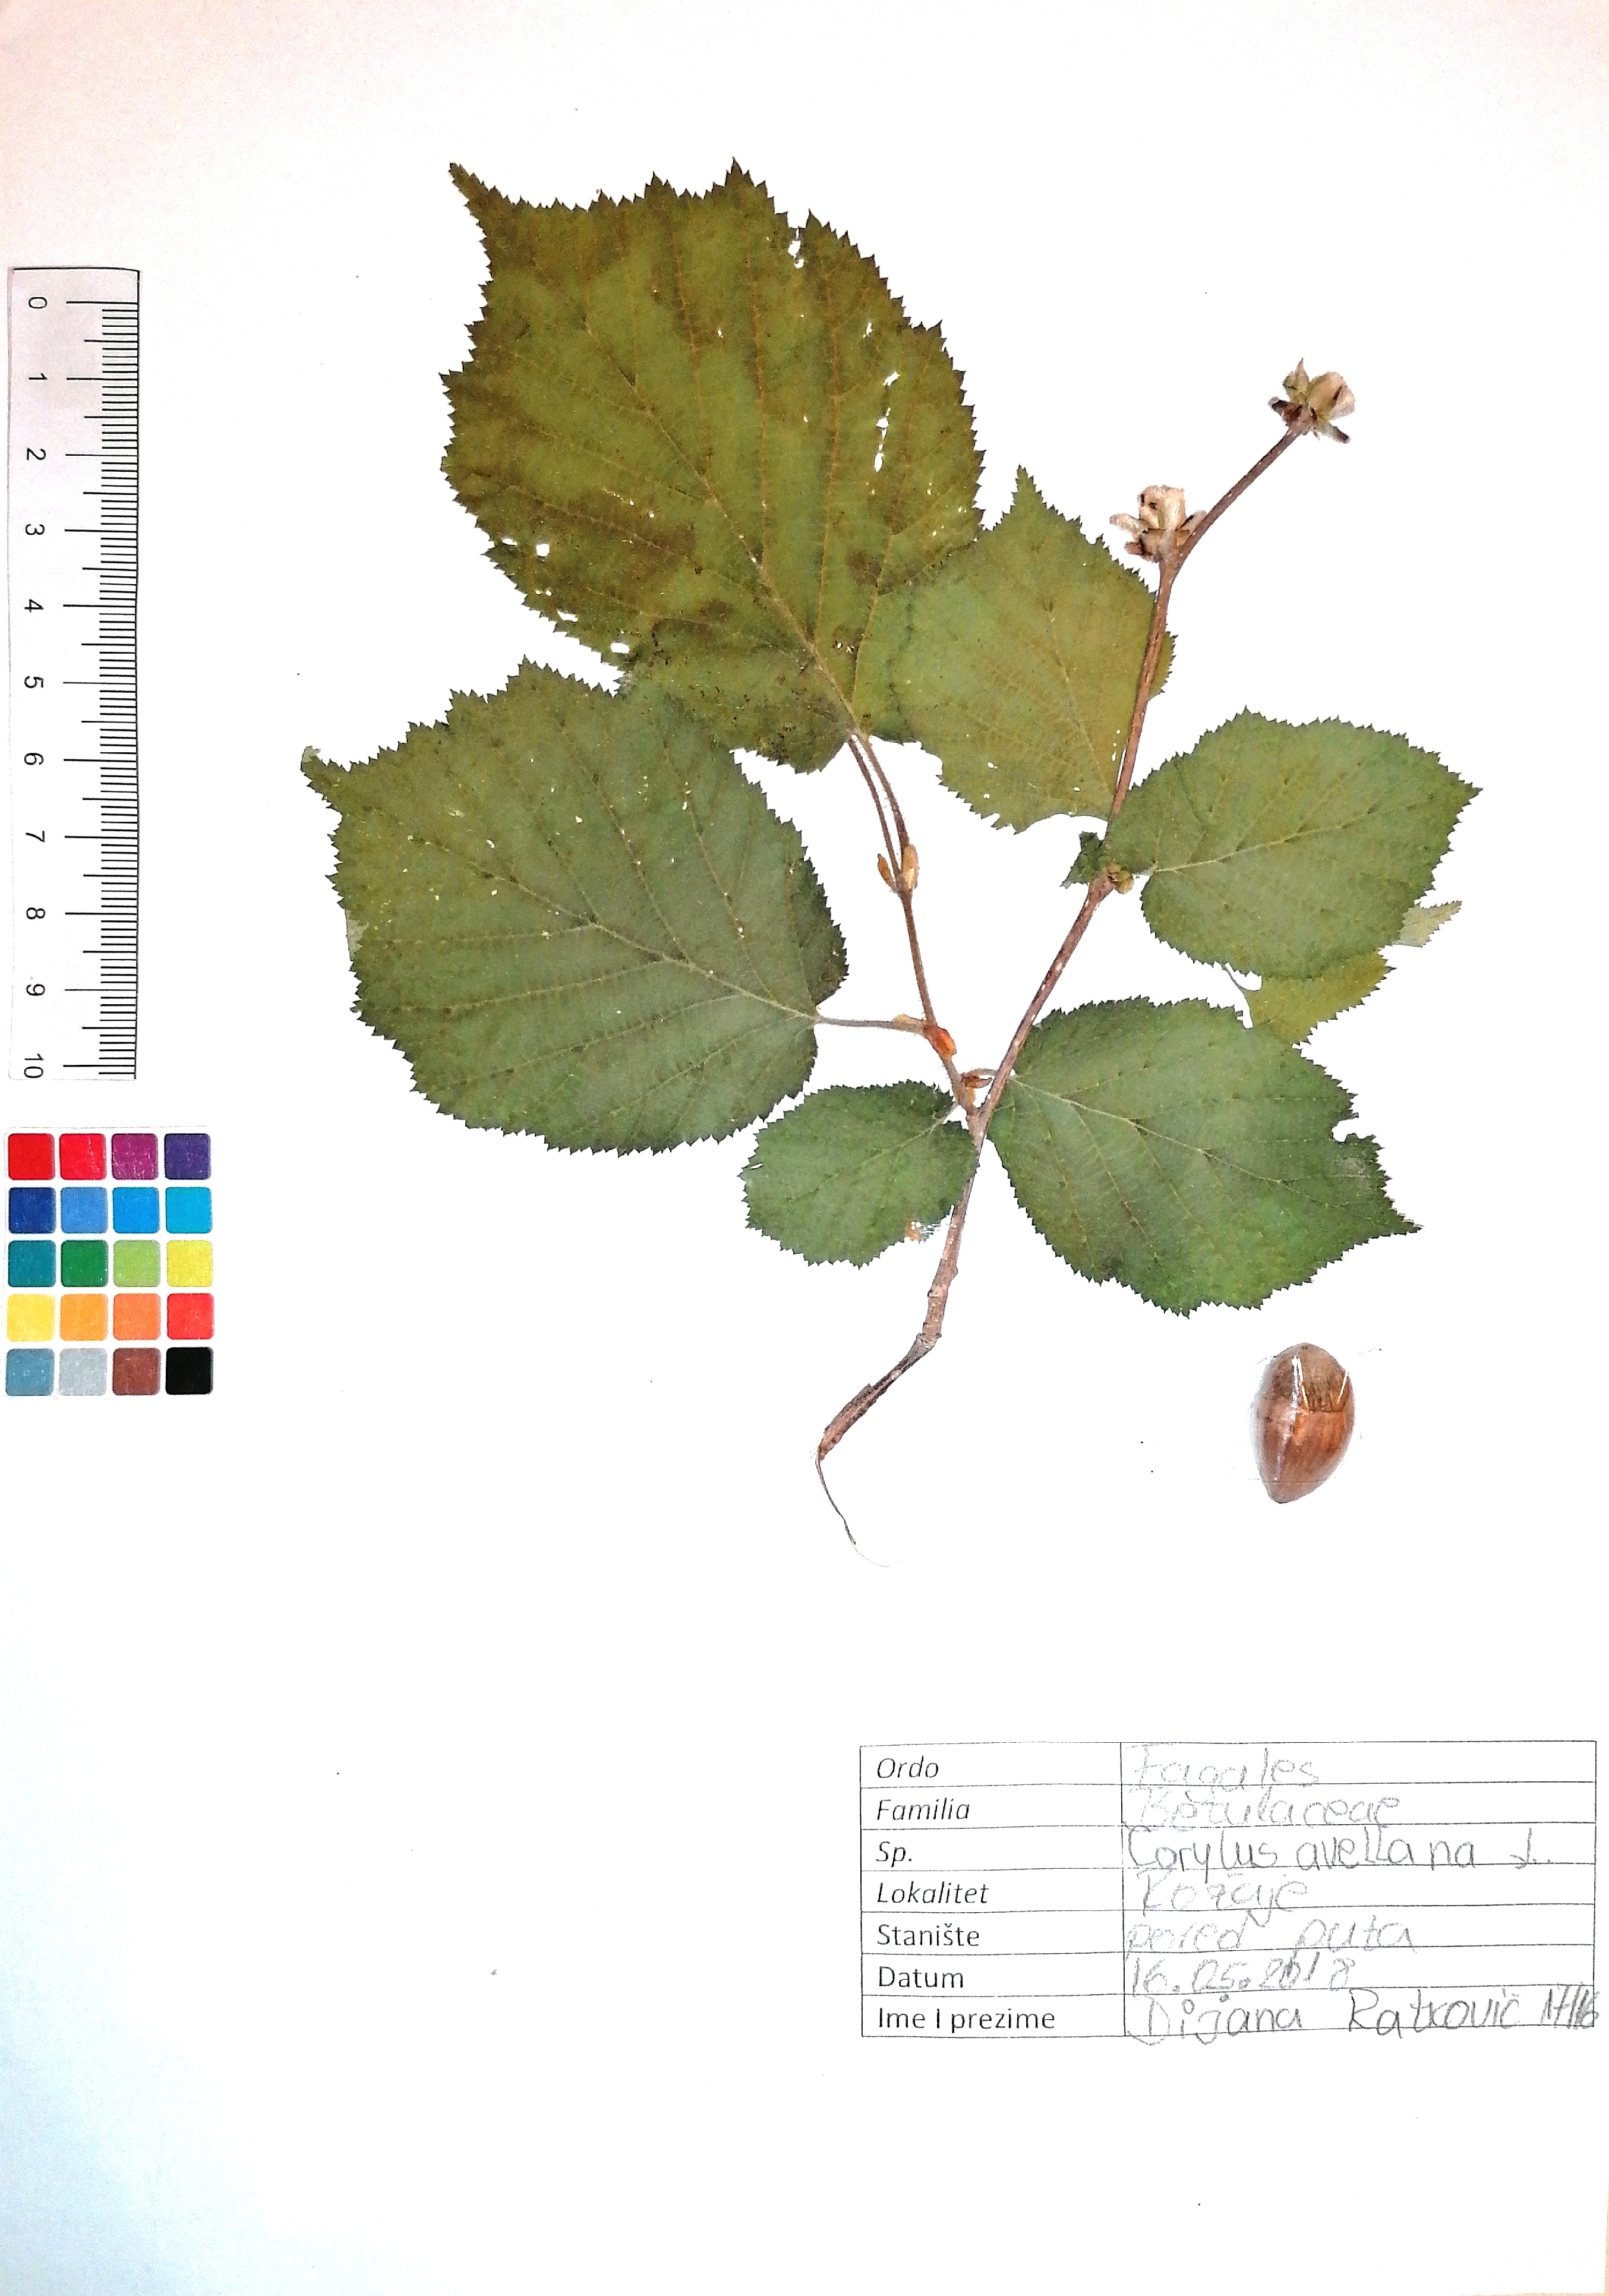 0
1
2
3
4
5
6
7
8
9
10
Ordo Fagales
Familia Betulaceae
Sp. Corylus avellana L.
Lokalitet
Stanište pored puta
Datum 16.05.2018
Ime I prezime Dijana Ratković 17/16